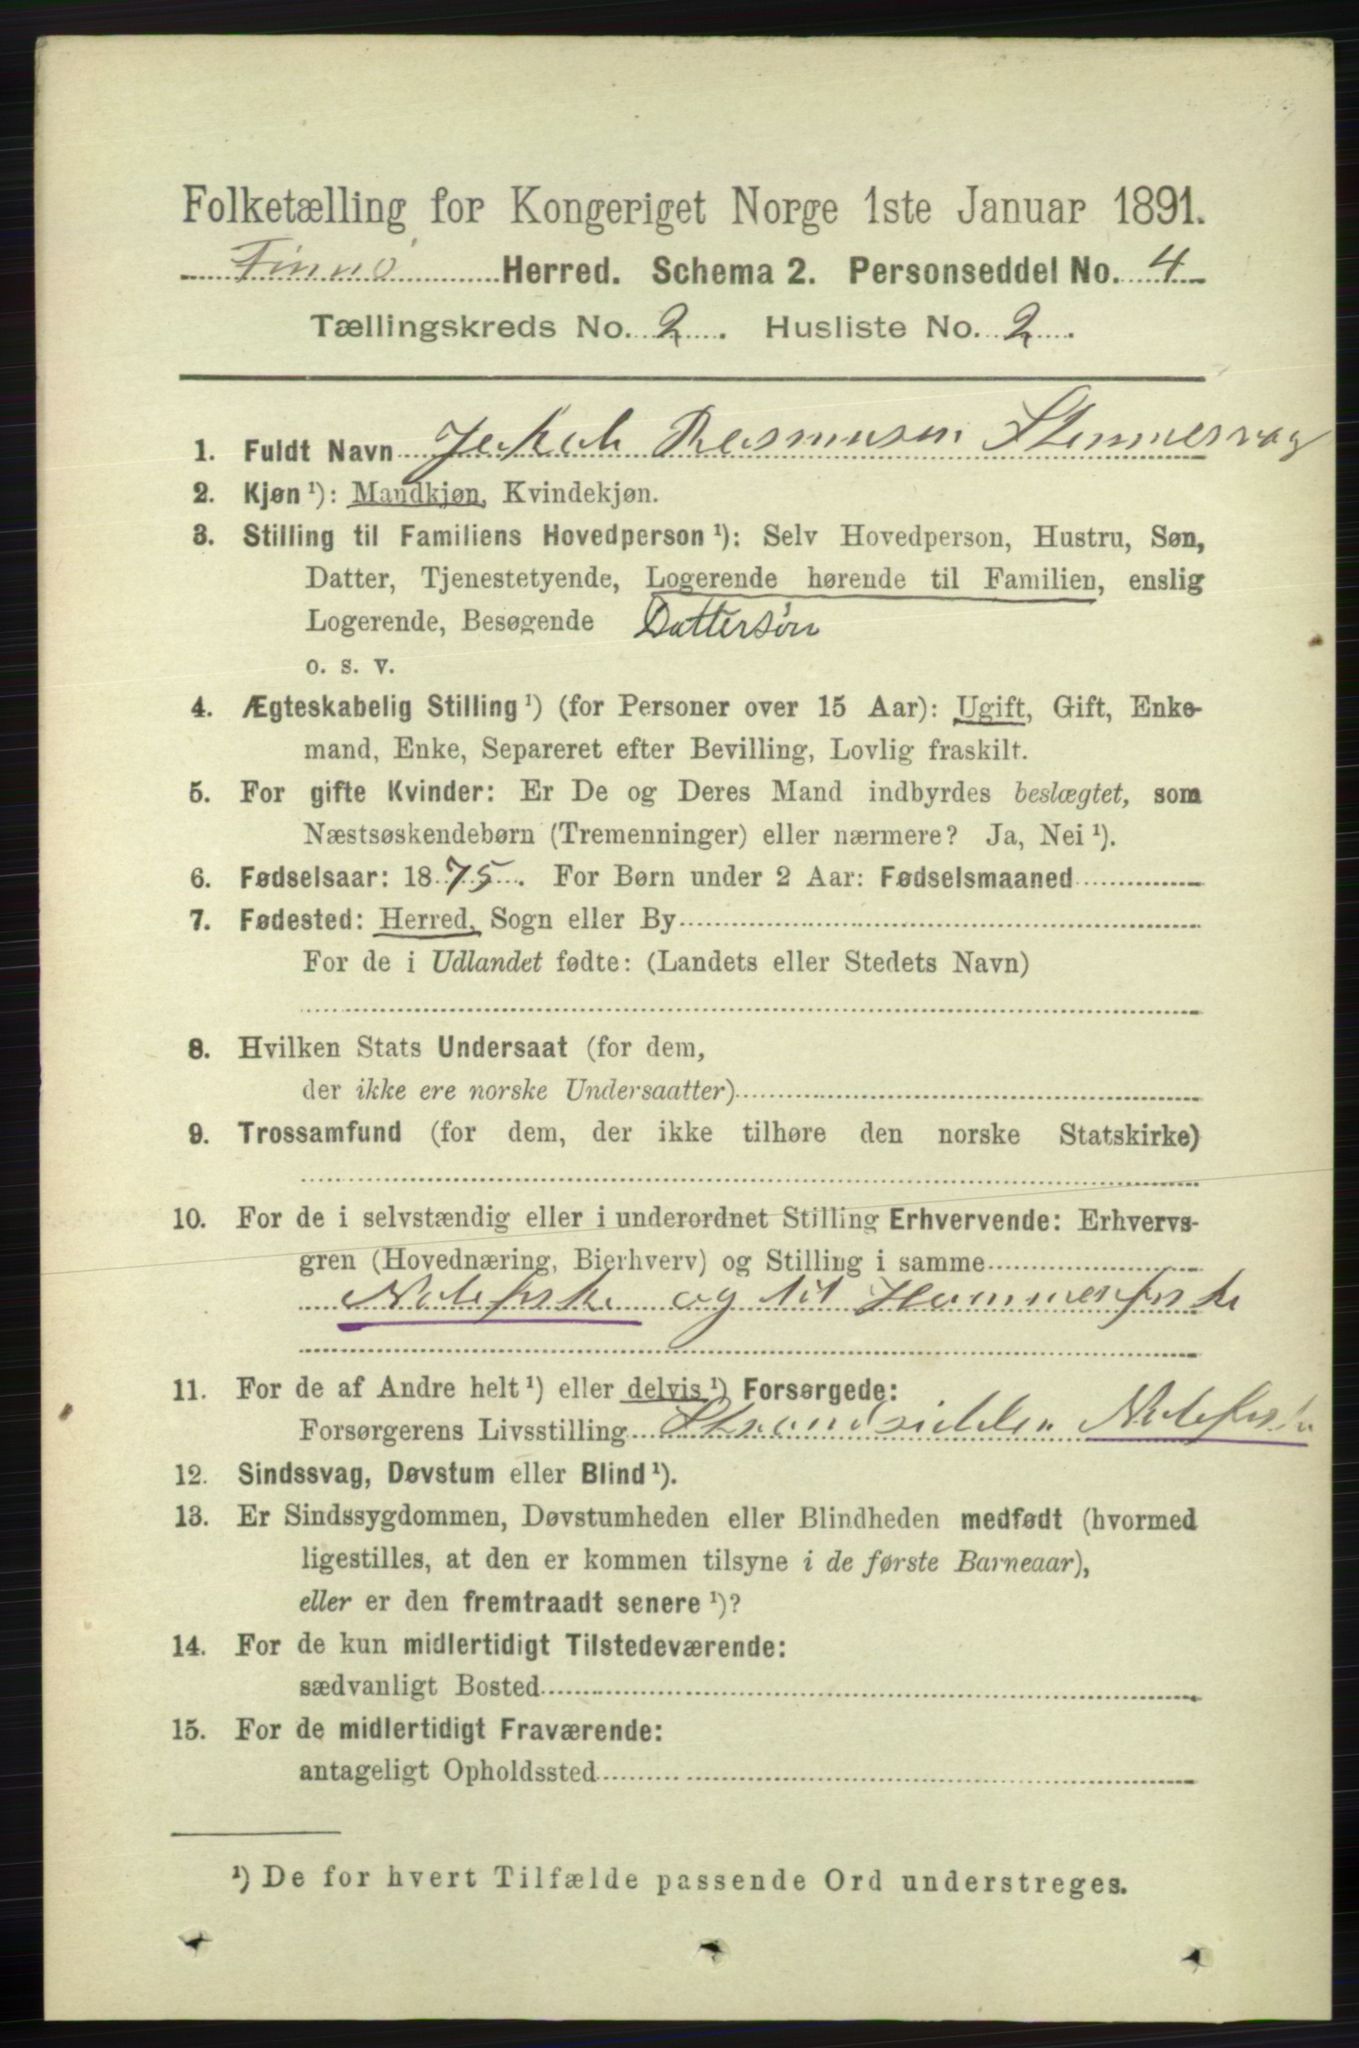 Folketælling for Kongeriget Norge 1ste Januar 1891.
Finnö Herred. Schema 2. Personseddel No. 4
Tællingskreds No. 2. Husliste No. 2.
1. Fuldt Navn Jakob Rasmusen Stennesvag
2. Kjøn ¹): Mandkjøn, Kvindekjøn.
3. Stilling til Familiens Hovedperson ¹): Selv Hovedperson, Hustru, Søn,
Datter, Tjenestetyende, Logerende hørende til Familien, enslig
Logerende, Besøgende Dattersön
o. s. v.
4. Ægteskabelig Stilling ¹) (for Personer over 15 Aar): Ugift, Gift, Enke-
mand, Enke, Separeret efter Bevilling, Lovlig fraskilt.
5. For gifte Kvinder: Er De og Deres Mand indbyrdes beslægtet, som
Næstsøskendebørn (Tremenninger) eller nærmere? Ja, Nei ¹).
6. Fødselsaar: 1875. For Børn under 2 Aar: Fødselsmaaned
7. Fødested: Herred, Sogn eller By
For de i Udlandet fødte: (Landets eller Stedets Navn)
8. Hvilken Stats Undersaat (for dem,
der ikke ere norske Undersaatter)
9. Trossamfund (for dem, der ikke tilhøre den norske Statskirke)
10. For de i selvstændig eller i underordnet Stilling Erhvervende: Erhvervs-
gren (Hovednæring, Bierhverv) og Stilling i samme
Notefiske og til Hummerfiske
11. For de af Andre helt ¹) eller delvis ¹) Forsørgede:
Forsørgerens Livsstilling Strandsidder Notefiske
12. Sindssvag, Døvstum eller Blind ¹).
13. Er Sindssygdommen, Døvstumheden eller Blindheden medfødt (hvormed
ligestilles, at den er kommen tilsyne i de første Barneaar),
eller er den fremtraadt senere ¹)?
14. For de kun midlertidigt Tilstedeværende:
sædvanligt Bosted
15. For de midlertidigt Fraværende:
antageligt Opholdssted
¹) De for hvert Tilfælde passende Ord understreges.